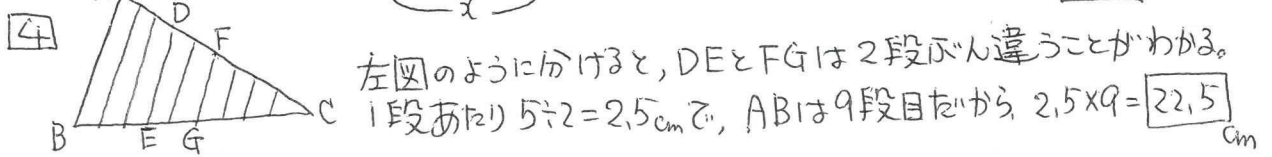 x
4
D
F
左図のように分けると,DEとFGは2段ぶん違うことがわかる。
C
1段あたり5÷2=2.5cmで, ABは9段目だから, 2.5×9=22.5
B
E
G
cm